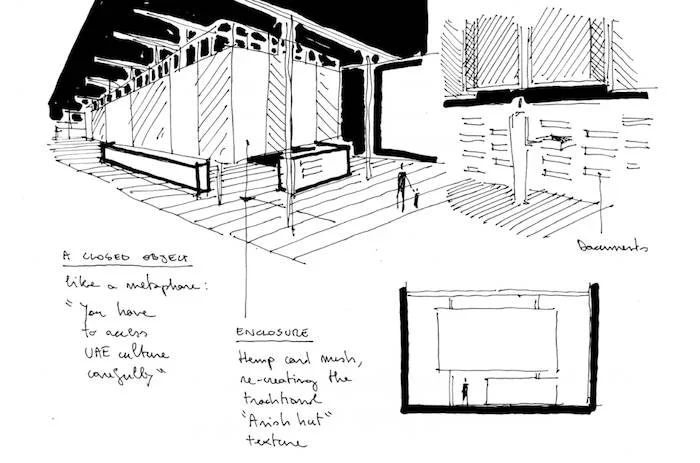 Documents
A CLOSED OBJECT
like a metaphore:
"You have
to access
UAE culture
carefully"
ENCLOSURE
Hemp cord mesh,
re-creating the
traditional
"Arish hut"
texture